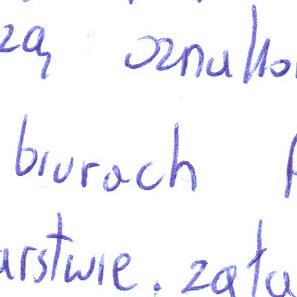 zą oznako
biurach
arstwie. zała